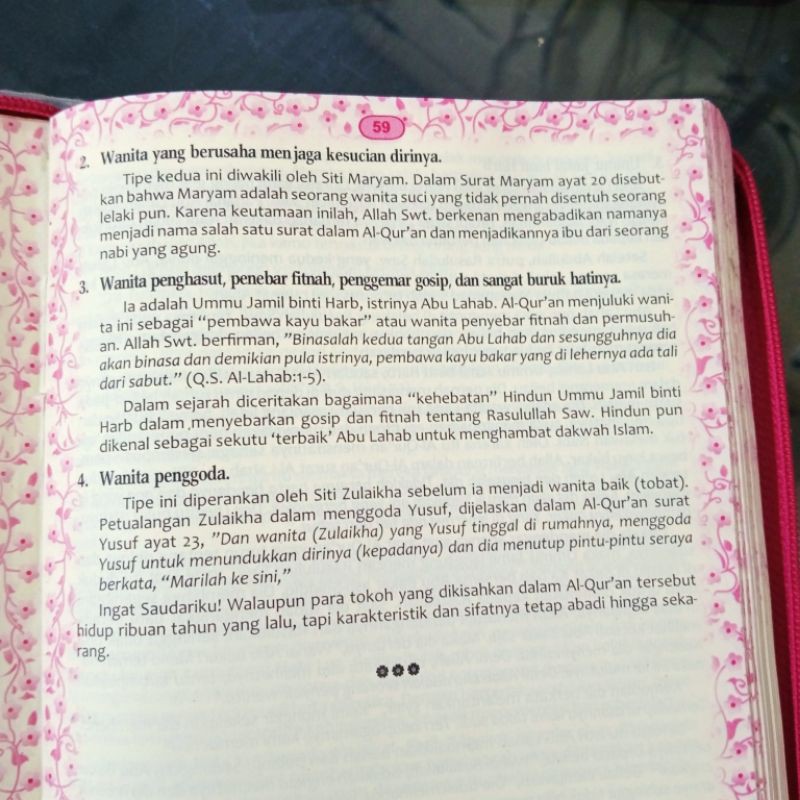 59
2. Wanita yang berusaha menjaga kesucian dirinya.
Tipe kedua ini diwakili oleh Siti Maryam. Dalam Surat Maryam ayat 20 disebut-
kan bahwa Maryam adalah seorang wanita suci yang tidak pernah disentuh seorang
lelaki pun. Karena keutamaan inilah, Allah Swt. berkenan mengabadikan namanya
menjadi nama salah satu surat dalam Al-Qur'an dan menjadikannya ibu dari seorang
nabi yang agung.
3. Wanita penghasut, penebar fitnah, penggemar gosip, dan sangat buruk hatinya.
Ia adalah Ummu Jamil binti Harb, istrinya Abu Lahab. Al-Qur'an menjuluki wani-
ta ini sebagai "pembawa kayu bakar" atau wanita penyebar fitnah dan permusuh-
an. Allah Swt. berfirman, "Binasalah kedua tangan Abu Lahab dan sesungguhnya dia
akan binasa dan demikian pula istrinya, pembawa kayu bakar yang di lehernya ada tali
dari sabut." (Q.S. Al-Lahab:1-5).
Dalam sejarah diceritakan bagaimana "kehebatan" Hindun Ummu Jamil binti
Harb dalam menyebarkan gosip dan fitnah tentang Rasulullah Saw. Hindun pun
dikenal sebagai sekutu 'terbaik' Abu Lahab untuk menghambat dakwah Islam.
4. Wanita penggoda.
Tipe ini diperankan oleh Siti Zulaikha sebelum ia menjadi wanita baik (tobat).
Petualangan Zulaikha dalam menggoda Yusuf, dijelaskan dalam Al-Qur'an surat
Yusuf ayat 23, "Dan wanita (Zulaikha) yang Yusuf tinggal di rumahnya, menggoda
Yusuf untuk menundukkan dirinya (kepadanya) dan dia menutup pintu-pintu seraya
berkata, "Marilah ke sini,"
Ingat Saudariku! Walaupun para tokoh yang dikisahkan dalam Al-Qur'an tersebut
hidup ribuan tahun yang lalu, tapi karakteristik dan sifatnya tetap abadi hingga seka-
rang.